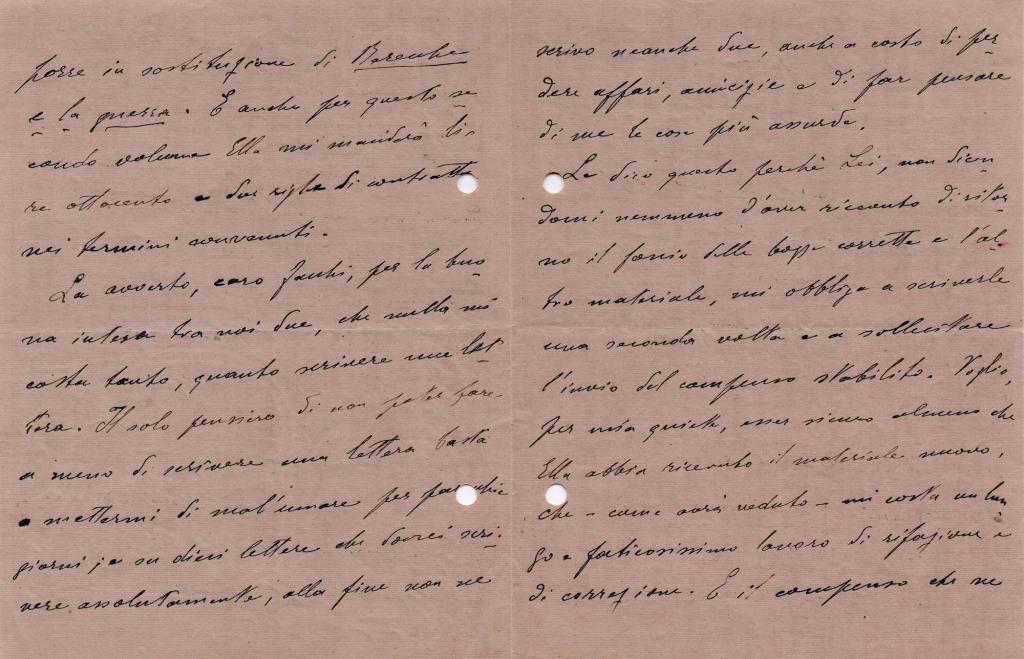 porre in sostituzione di Barenche
e la guerra. E anche per questo se=
condo volume Ella mi manderà li=
re ottocento e due righe di contratto
nei termini convenuti.
La avverto, caro, per la buo=
na intesa tra noi due, che nulla mi
costa tanto, quanto scrivere una let=
tera. Il solo pensiero di non poter fare
a meno di scrivere una lettera basta
a mettermi di mal'umore per parecchi
giorni; e su dieci lettere che dovrei scri=
vere assolutamente, alla fine non ne
scrivo neanche due, anche a costo di per
dere affari, amicizie e di far pensare
di me le cose più assurde.
Le dico questo perchè Lei, non dicen
domi nemmeno d'aver ricevuto di ritor
no il fascio delle bozze corrette e l'al
tro materiale, mi obbliga a scriverle
una seconda volta e a sollecitare
l'invio del compenso stabilito. Voglio,
per mia quiete, esser sicuro almeno che
Ella abbia ricevuto il materiale nuovo,
che - come avrà veduto - mi costa un lun
go e faticosissimo lavoro di rifazione e
di correzione. E il compenso che ne